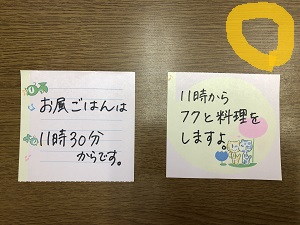 お昼ごはんは
11時30分
からです。
11時から
フクと料理を
しますよ。